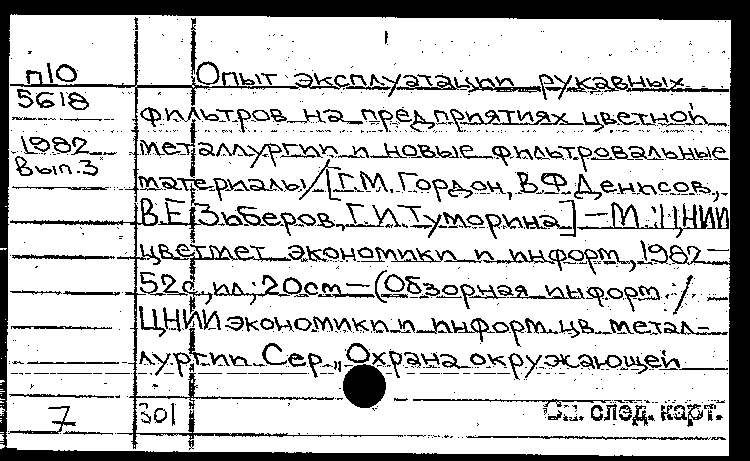 п10
5618
1982
Вып.3
Опыт эксплуатации рукавных
фильтров на предприятиях цветной
металлургии и новые фильтровальные
материалы/[Г.М. Гордон, В.Ф. Денисов,
В.Е. Зыберов, Г.И. Туморина]—М.: ЦНИИ
цветмет экономики и информ, 1982—
52с., ил.; 20см—(Обзорная информ./
ЦНИИ экономики и информ. цв. метал-
лургии. Сер. „Охрана окружающей
7 301 См. след. карт.